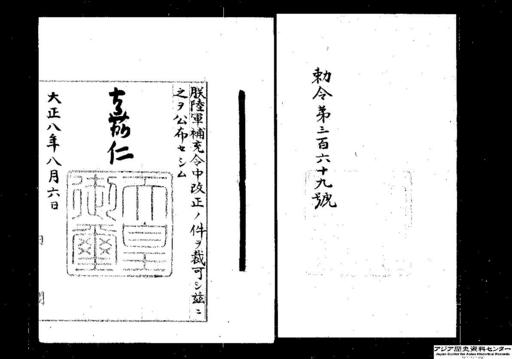 勅令第三百六十九號
朕陸軍補充令中改正ノ件ヲ裁可シ茲ニ
之ヲ公布セシム
嘉仁
天皇御璽
大正八年八月六日
アジア歴史資料センター
Japan Center for Asian Historical Records